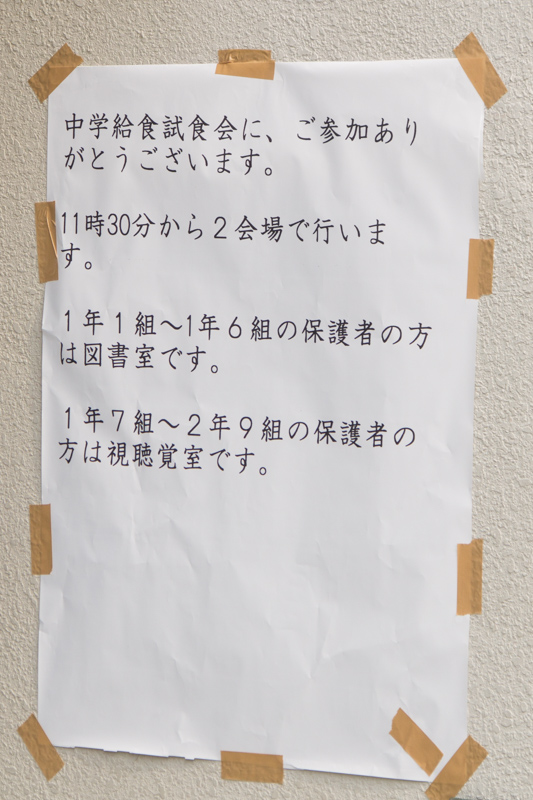 中学給食試食会に、ご参加あり
がとうございます。
11時30分から２会場で行いま
す。
１年１組〜1年６組の保護者の方
は図書室です。
１年７組〜２年９組の保護者の
方は視聴覚室です。